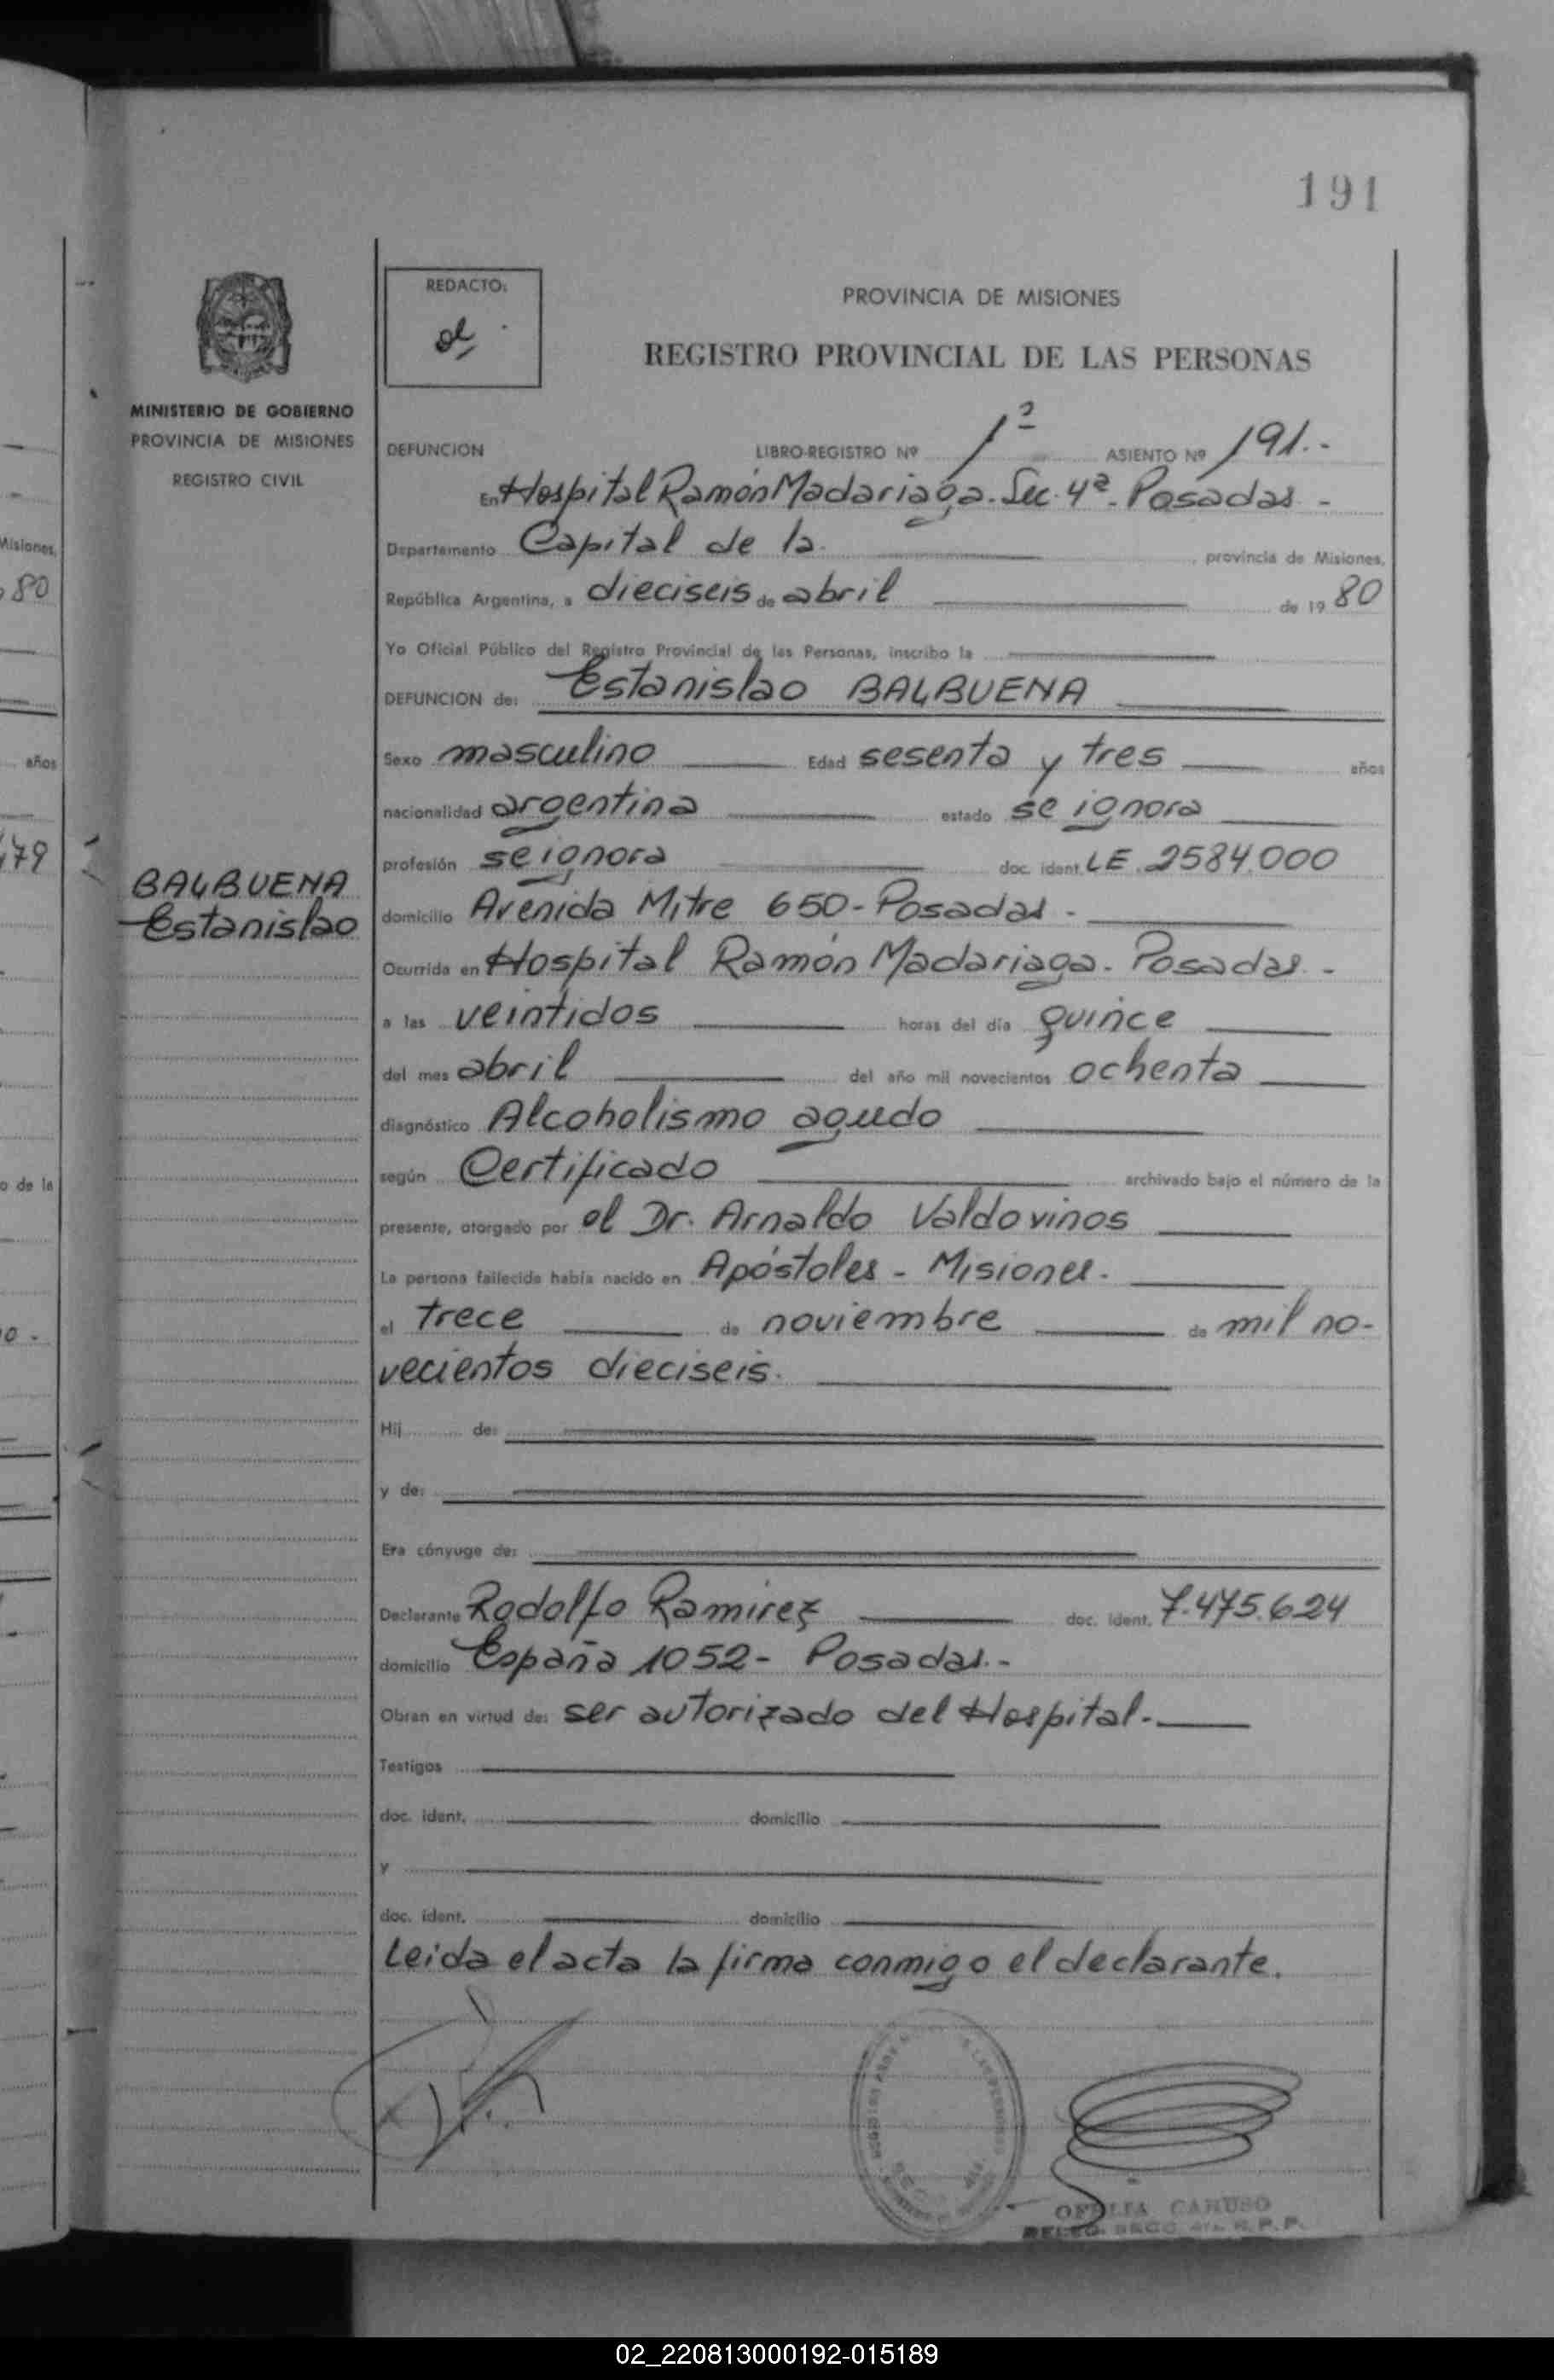 191
REDACTO:
PROVINCIA DE MISIONES
REGISTRO PROVINCIAL DE LAS PERSONAS
MINISTERIO DE GOBIERNO
PROVINCIA DE MISIONES
REGISTRO CIVIL
DEFUNCION LIBRO-REGISTRO Nº 1º ASIENTO Nº 191.-
En Hospital Ramón Madariaga. Sec. 4ª. Posadas -
Departamento Capital de la provincia de Misiones,
República Argentina, a dieciseis de abril de 19 80
Yo Oficial Público del Registro Provincial de las Personas, inscribo la
DEFUNCION de: Estanislao BALBUENA
Sexo masculino Edad sesenta y tres años
nacionalidad argentina estado se ignora
profesión se ignora doc. ident. LE 2584.000
BALBUENA
Estanislao
domicilio Avenida Mitre 650- Posadas -
Ocurrida en Hospital Ramón Madariaga. Posadas -
a las veintidos horas del día quince
del mes abril del año mil novecientos ochenta
diagnóstico Alcoholismo agudo
según Certificado archivado bajo el número de la
presente, otorgado por el Dr. Arnaldo Valdovinos
La persona fallecida había nacido en Apóstoles - Misiones.
el trece de noviembre de mil no-
vecientos dieciseis.
Hij de:
y de:
Era cónyuge de:
Declarante Rodolfo Ramirez doc. ident. 7.475.624
domicilio España 1052- Posadas.-
Obran en virtud de: ser autorizado del Hospital.
Testigos
doc. ident. domicilio
y
doc. ident. domicilio
Leida el acta la firma conmigo el declarante.
OFELIA CARUSO
Misiones,
80
años
79
o de la
02_220813000192-015189